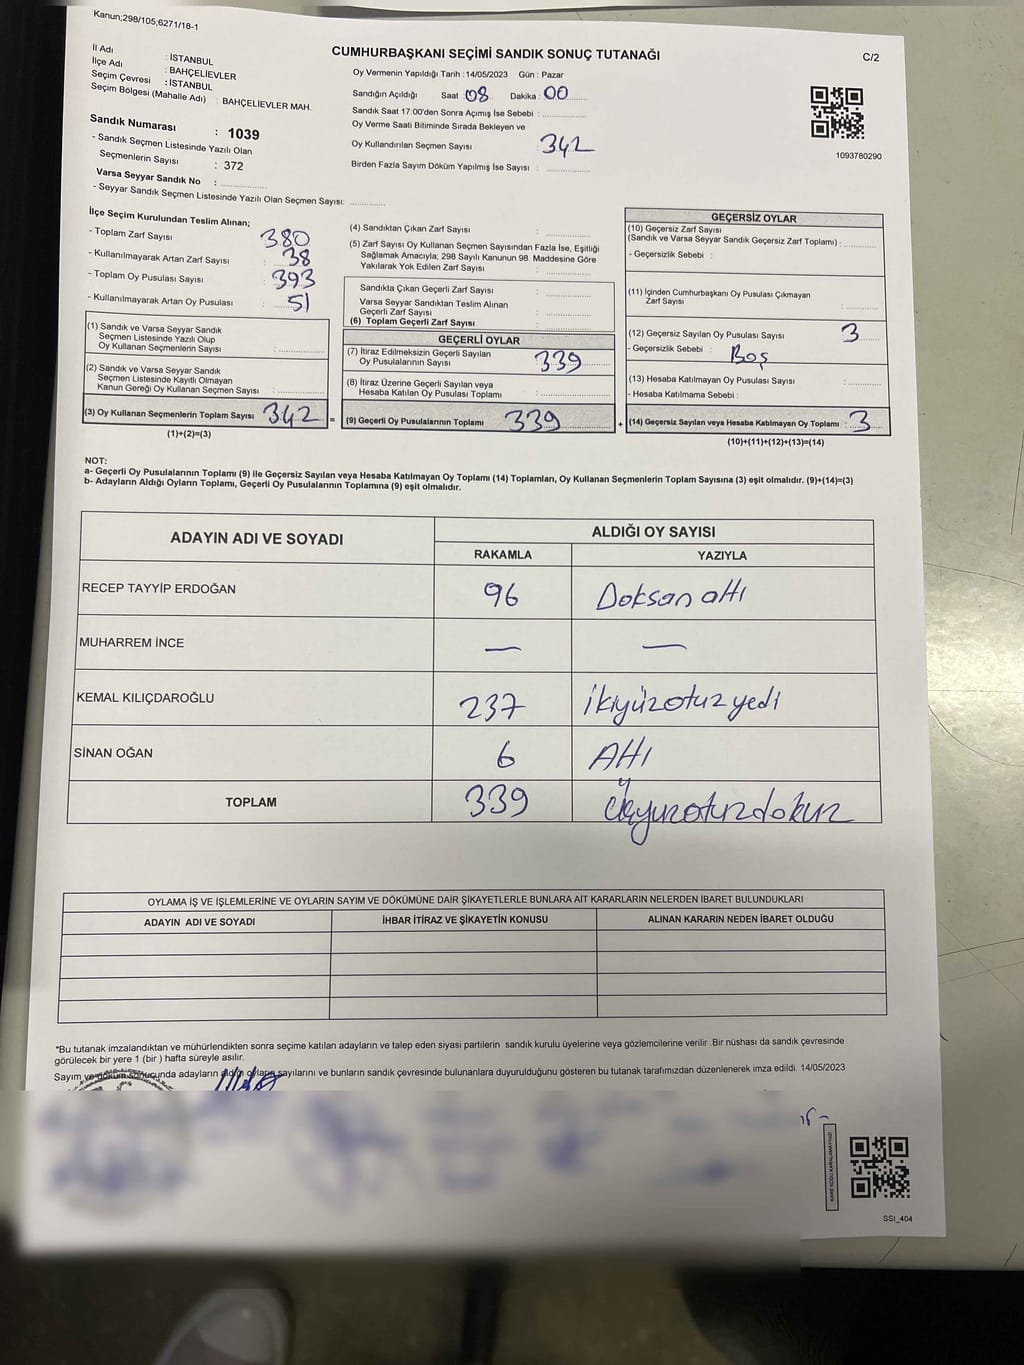 Kanun;298/105;6271/18-1
CUMHURBAŞKANI SEÇİMİ SANDIK SONUÇ TUTANAĞI
C/2
İl Adı : İSTANBUL
İlçe Adı : BAHÇELİEVLER
Seçim Çevresi : İSTANBUL
Seçim Bölgesi (Mahalle Adı) : BAHÇELİEVLER MAH.
Sandık Numarası : 1039
- Sandık Seçmen Listesinde Yazılı Olan
Seçmenlerin Sayısı : 372
Varsa Seyyar Sandık No :
- Seyyar Sandık Seçmen Listesinde Yazılı Olan Seçmen Sayısı:
Oy Vermenin Yapıldığı Tarih : 14/05/2023 Gün : Pazar
Sandığın Açıldığı Saat 08 Dakika : 00
Sandık Saat 17:00'den Sonra Açımış İse Sebebi :
Oy Verme Saati Bitiminde Sırada Bekleyen ve
Oy Kullandırılan Seçmen Sayısı : 342
Birden Fazla Sayım Döküm Yapılmış İse Sayısı :
1093760290
İlçe Seçim Kurulundan Teslim Alınan;
- Toplam Zarf Sayısı : 380
- Kullanılmayarak Artan Zarf Sayısı : 38
- Toplam Oy Pusulası Sayısı : 393
- Kullanılmayarak Artan Oy Pusulası : 51
(1) Sandık ve Varsa Seyyar Sandık
Seçmen Listesinde Yazılı Olup
Oy Kullanan Seçmenlerin Sayısı :
(2) Sandık ve Varsa Seyyar Sandık
Seçmen Listesinde Kayıtlı Olmayan
Kanun Gereği Oy Kullanan Seçmen Sayısı :
(3) Oy Kullanan Seçmenlerin Toplam Sayısı 342 =
(1)+(2)=(3)
(4) Sandıktan Çıkan Zarf Sayısı :
(5) Zarf Sayısı Oy Kullanan Seçmen Sayısından Fazla İse, Eşitliği
Sağlamak Amacıyla; 298 Sayılı Kanunun 98. Maddesine Göre
Yakılarak Yok Edilen Zarf Sayısı :
Sandıkta Çıkan Geçerli Zarf Sayısı :
Varsa Seyyar Sandıktan Teslim Alınan
Geçerli Zarf Sayısı :
(6) Toplam Geçerli Zarf Sayısı :
GEÇERLİ OYLAR
(7) İtiraz Edilmeksizin Geçerli Sayılan
Oy Pusulalarının Sayısı : 339
(8) İtiraz Üzerine Geçerli Sayılan veya
Hesaba Katılan Oy Pusulası Toplamı :
(9) Geçerli Oy Pusulalarının Toplamı 339 +
GEÇERSİZ OYLAR
(10) Geçersiz Zarf Sayısı
(Sandık ve Varsa Seyyar Sandık Geçersiz Zarf Toplamı) :
- Geçersizlik Sebebi :
(11) İçinden Cumhurbaşkanı Oy Pusulası Çıkmayan
Zarf Sayısı :
(12) Geçersiz Sayılan Oy Pusulası Sayısı : 3
- Geçersizlik Sebebi : Boş
(13) Hesaba Katılmayan Oy Pusulası Sayısı :
- Hesaba Katılmama Sebebi :
(14) Geçersiz Sayılan veya Hesaba Katılmayan Oy Toplamı : 3
(10)+(11)+(12)+(13)=(14)
NOT:
a- Geçerli Oy Pusulalarının Toplamı (9) ile Geçersiz Sayılan veya Hesaba Katılmayan Oy Toplamı (14) Toplamları, Oy Kullanan Seçmenlerin Toplam Sayısına (3) eşit olmalıdır. (9)+(14)=(3)
b- Adayların Aldığı Oyların Toplamı, Geçerli Oy Pusulalarının Toplamına (9) eşit olmalıdır.
ADAYIN ADI VE SOYADI
ALDIĞI OY SAYISI
RAKAMLA YAZIYLA
RECEP TAYYİP ERDOĞAN 96 Doksan altı
MUHARREM İNCE — —
KEMAL KILIÇDAROĞLU 237 İkiyüzotuz yedi
SİNAN OĞAN 6 Altı
TOPLAM 339 Üçyüzotuzdokuz
OYLAMA İŞ VE İŞLEMLERİNE VE OYLARIN SAYIM VE DÖKÜMÜNE DAİR ŞİKAYETLERLE BUNLARA AİT KARARLARIN NELERDEN İBARET BULUNDUKLARI
ADAYIN ADI VE SOYADI İHBAR İTİRAZ VE ŞİKAYETİN KONUSU ALINAN KARARIN NEDEN İBARET OLDUĞU
*Bu tutanak imzalandıktan ve mühürlendikten sonra seçime katılan adayların ve talep eden siyasi partilerin sandık kurulu üyelerine veya gözlemcilerine verilir .Bir nüshası da sandık çevresinde
görülecek bir yere 1 (bir ) hafta süreyle asılır.
Sayım ve döküm sonucunda adayların aldığı oyların sayılarını ve bunların sandık çevresinde bulunanlara duyurulduğunu gösteren bu tutanak tarafımızdan düzenlenerek imza edildi. 14/05/2023
KARE KODU KARALAMAYINIZ!
SSİ_404